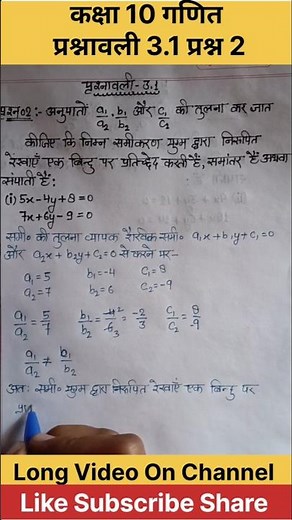 कक्षा 10 गणित
प्रश्नावली 3.1 प्रश्न 2
प्रश्नावली- 3.1
प्रश्न०२ :- अनुपातों a₁/a₂, b₁/b₂ और c₁/c₂ की तुलना कर ज्ञात
कीजिए कि निम्न समीकरण युग्म द्वारा निरूपित
रेखाएँ एक बिन्दु पर प्रतिच्छेद करती हैं, समांतर हैं अथवा
संपाती हैं :
(i) 5x-4y+8=0
7x+6y-9=0
समी० की तुलना व्यापक रैखिक समी० a₁x+b₁y+c₁=0
और a₂x+b₂y+c₂=0 से करने पर-
a₁=5 b₁=-4 c₁=8
a₂=7 b₂=6 c₂=-9
a₁/a₂ = 5/7 b₁/b₂ = -4²/6₃ = -2/3 c₁/c₂ = 8/-9
a₁/a₂ ≠ b₁/b₂
अतः समी० युग्म द्वारा निरूपित रेखाएँ एक बिन्दु पर
Long Video On Channel
Like Subscribe Share